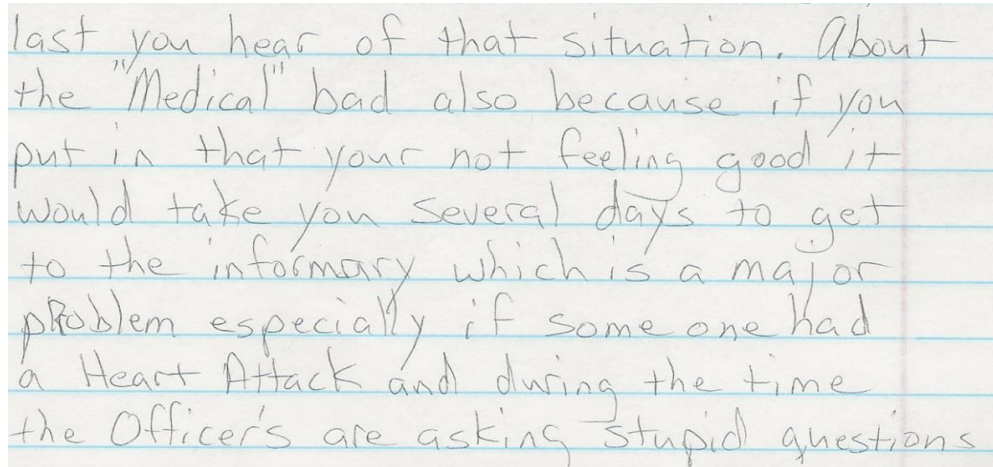 last you hear of that situation. About
the "Medical" bad also because if you
put in that your not feeling good it
would take you several days to get
to the informary which is a major
pRoblem especially if some one had
a Heart Attack and during the time
the Officer's are asking stupid questions